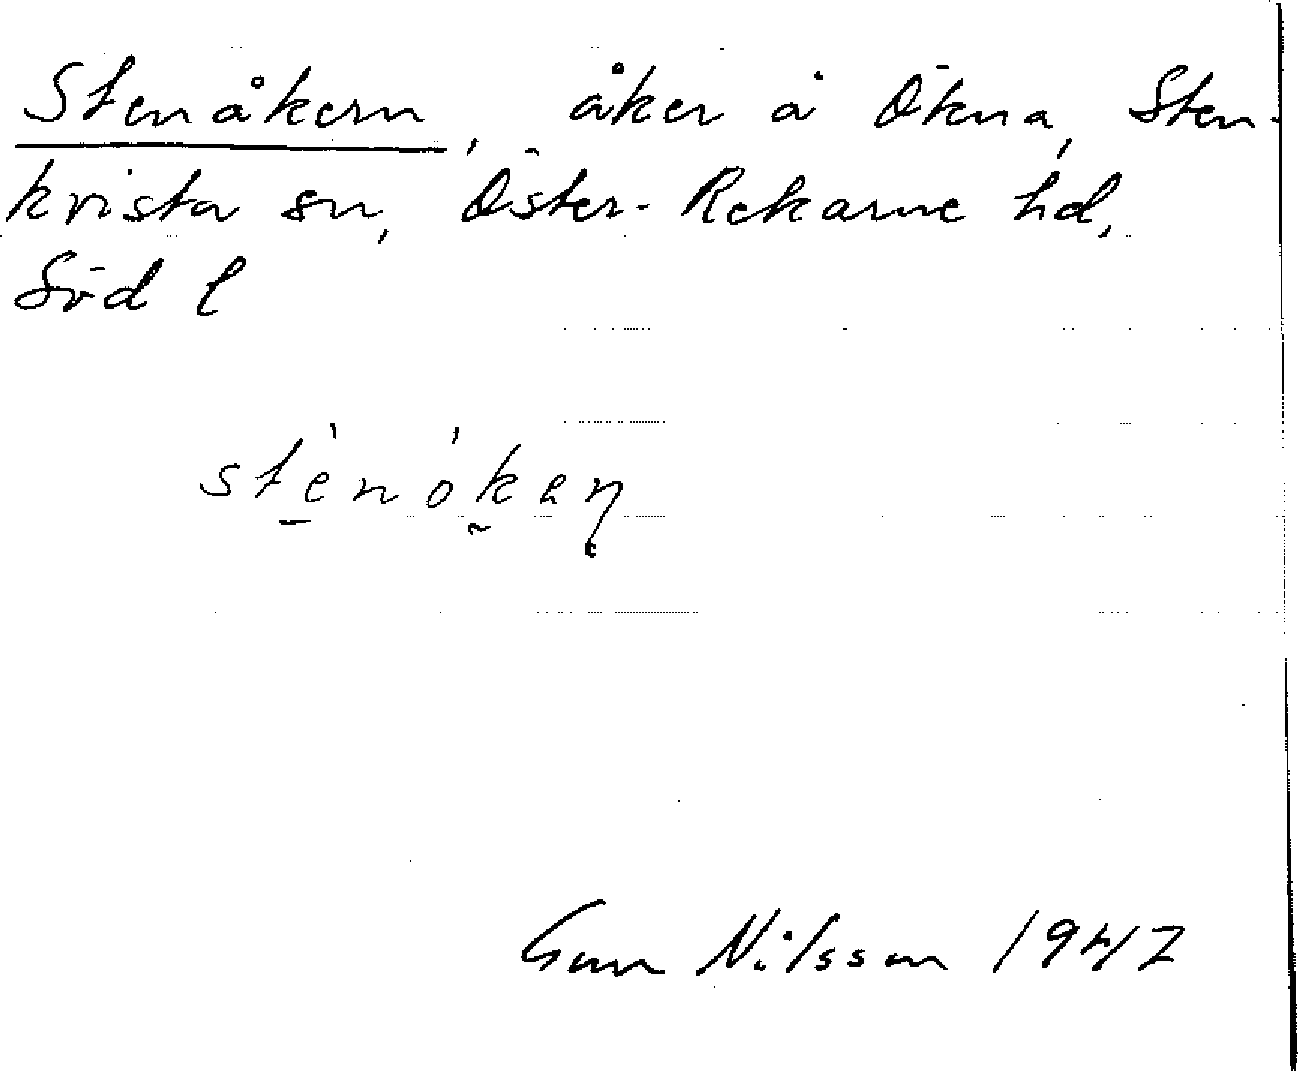 Stenåkern, åker å Ökna, Sten-
kvista sn, Öster-Rekarne hd,
Söd l
stènókaꞑ
Gun Nilsson 1947